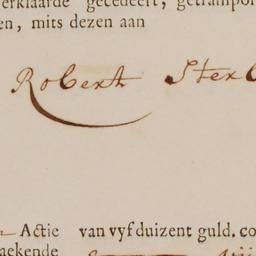 erklaarde gecedeert, getranspor
en, mits dezen aan
Robert Ster
Actie van vyf duizent guld. co
aekende